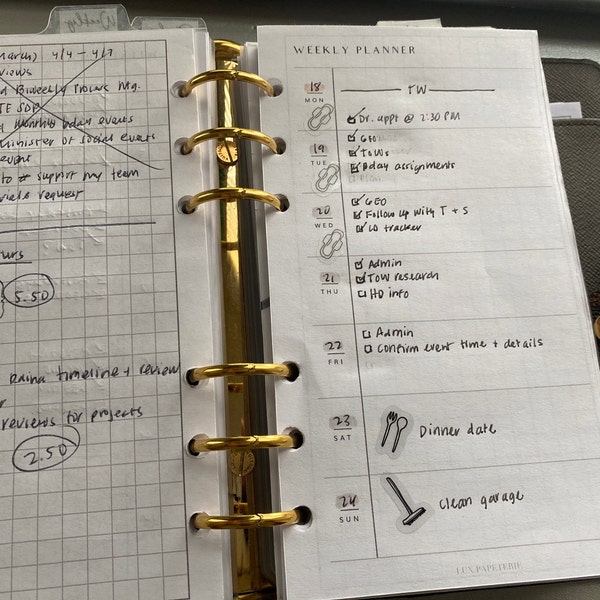 Weekly
March) 4/4 - 4/7
views
Biweekly
SOP
Monthly bday events
Minister of Social events
to # support my team
request
5.50
timeline + review
reviews for projects
2.50
WEEKLY PLANNER
18
MON
Dr. appt @ 2:30 PM
19
TUE
GEO
TOWs
Bday assignments
20
WED
GEO
Follow up with T + S
tracker
21
THU
Admin
TOW research
HD info
22
FRI
Admin
confirm event time + details
23
SAT
Dinner date
24
SUN
clean garage
LUX PAPETERIE